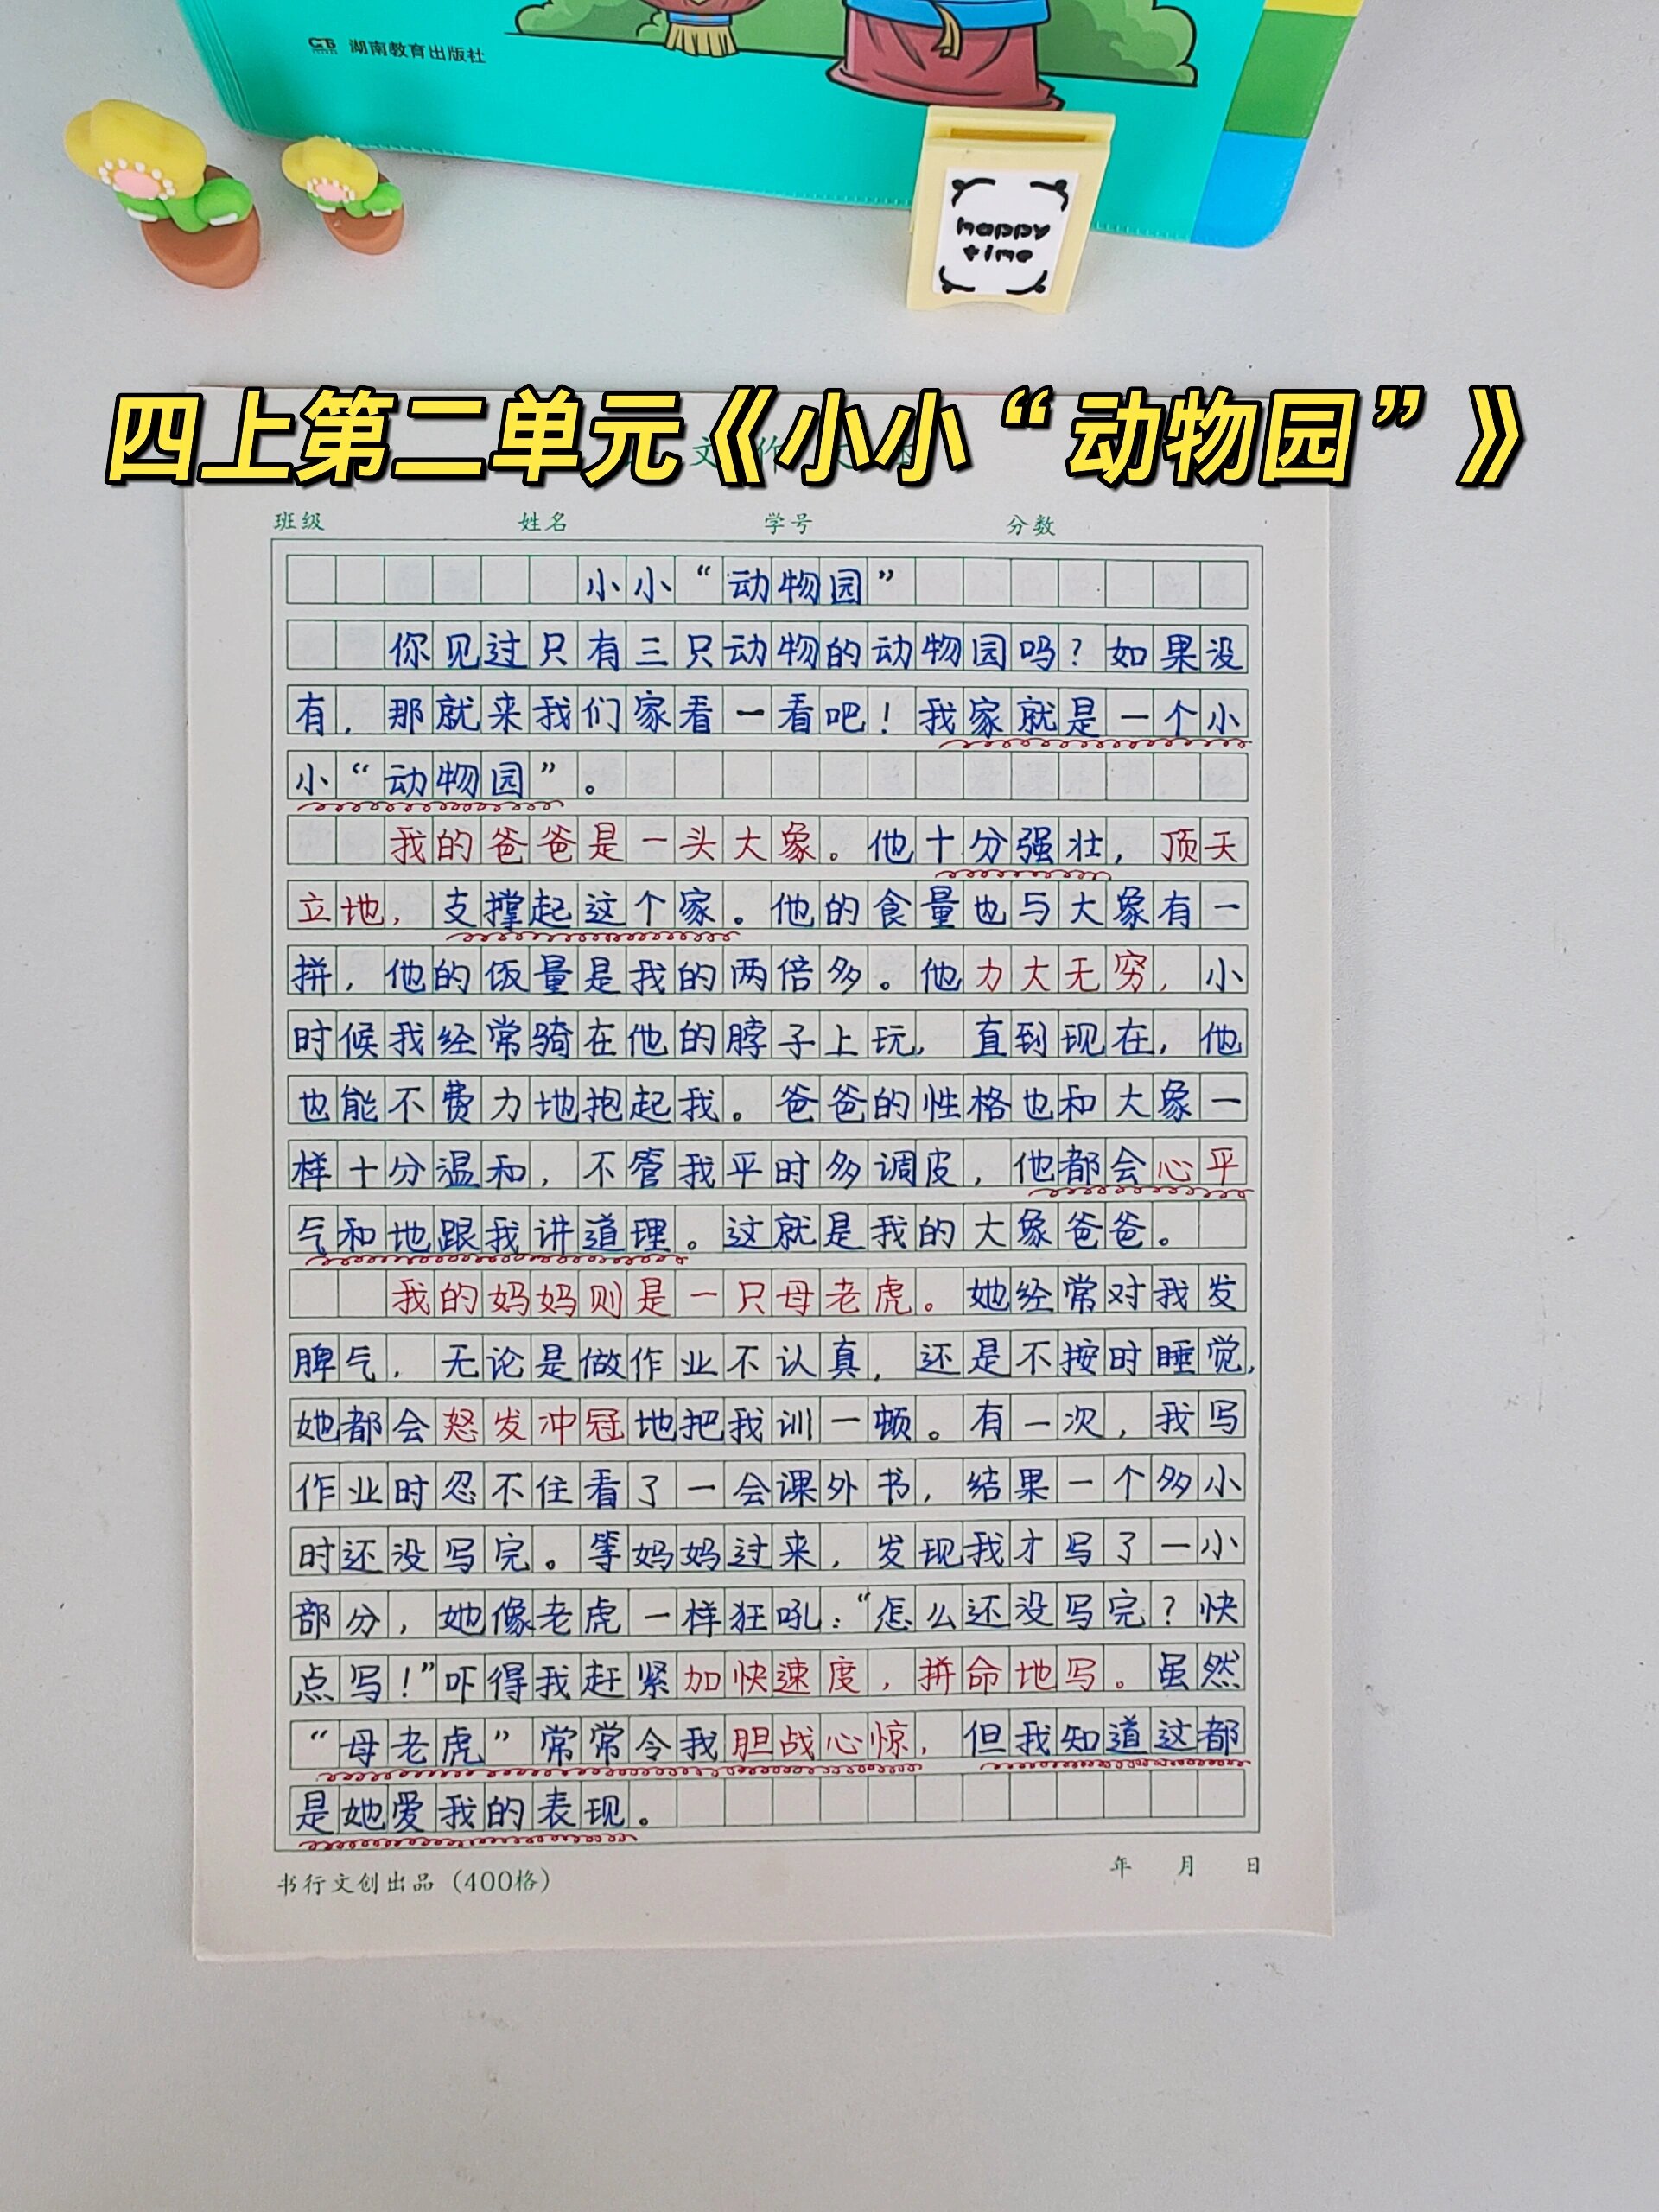 湖南教育出版社
happy
time
四上第二单元《小小“动物园”》
班级 姓名 学号 分数
小小“动物园”
你见过只有三只动物的动物园吗？如果没
有，那就来我们家看一看吧！我家就是一个小
小“动物园”。
我的爸爸是一头大象。他十分强壮，顶天
立地，支撑起这个家。他的食量也与大象有一
拼，他的饭量是我的两倍多。他力大无穷，小
时候我经常骑在他的脖子上玩，直到现在，他
也能不费力地抱起我。爸爸的性格也和大象一
样十分温和，不管我平时多调皮，他都会心平
气和地跟我讲道理。这就是我的大象爸爸。
我的妈妈则是一只母老虎。她经常对我发
脾气，无论是做作业不认真，还是不按时睡觉，
她都会怒发冲冠地把我训一顿。有一次，我写
作业时忍不住看了一会课外书，结果一个多小
时还没写完。等妈妈过来，发现我才写了一小
部分，她像老虎一样狂吼：“怎么还没写完？快
点写！”吓得我赶紧加快速度，拼命地写。虽然
“母老虎”常常令我胆战心惊，但我知道这都
是她爱我的表现。
书行文创出品（400格） 年 月 日